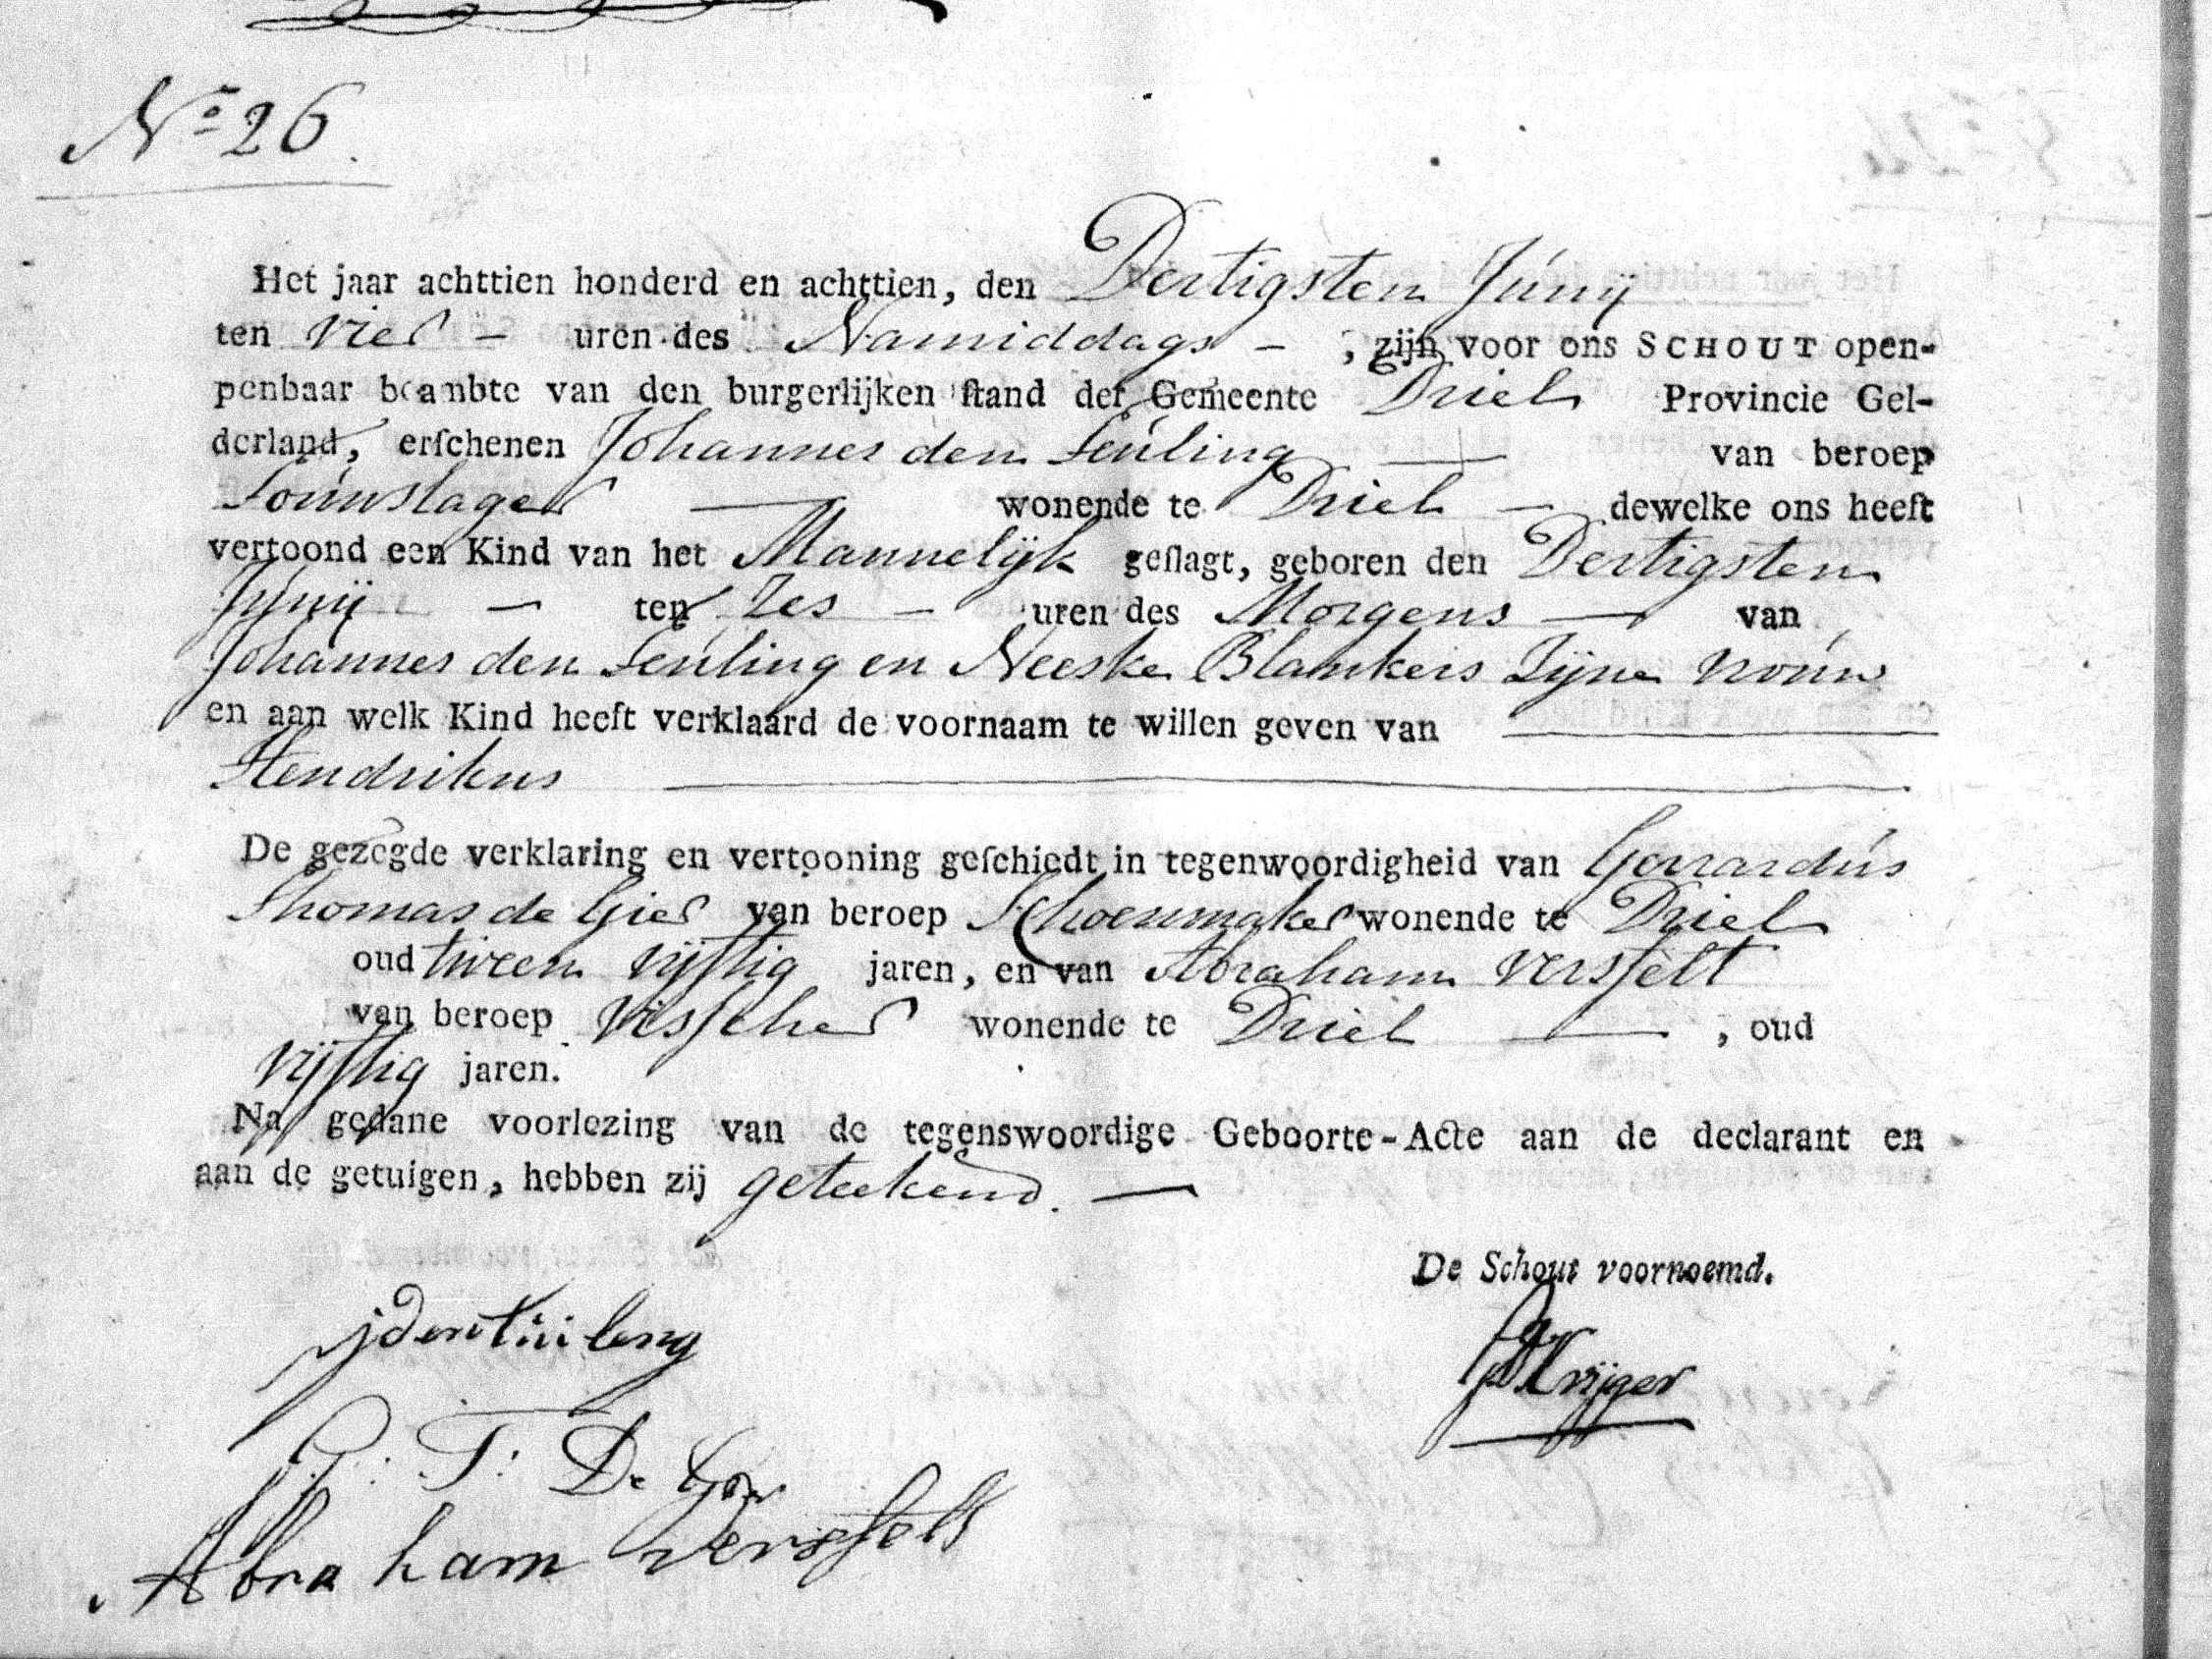 No 26.
Het jaar achttien honderd en achttien, den Dertigsten Junij
ten vier – uren des Namiddags – , zijn voor ons SCHOUT open-
penbaar beambte van den burgerlijken ſtand der Gemeente Driel Provincie Gel-
derland, erſchenen Johannes den Teuling — van beroep
Touwslager — wonende te Driel – dewelke ons heeft
vertoond een Kind van het Mannelijk geſlagt, geboren den Dertigsten
Junij – ten Zes – uren des Morgens — van
Johannes den Teuling en Neeske Blankers Zijne vrouw
en aan welk Kind heeft verklaard de voornaam te willen geven van —
Hendrikus —
De gezegde verklaring en vertooning geſchiedt in tegenwoordigheid van Gerrardus
Thomas de Gier van beroep Schoenmaker wonende te Driel
oud tween vijftig jaren, en van Abraham Versfelt
van beroep Visscher wonende te Driel — , oud
vijftig jaren.
Na gedane voorlezing van de tegenswoordige Geboorte-Acte aan de declarant en
aan de getuigen, hebben zij geteekend. —
De Schout voornoemd.
j den tuileng
Krijger
G: T: De Gier
Abraham versfelt